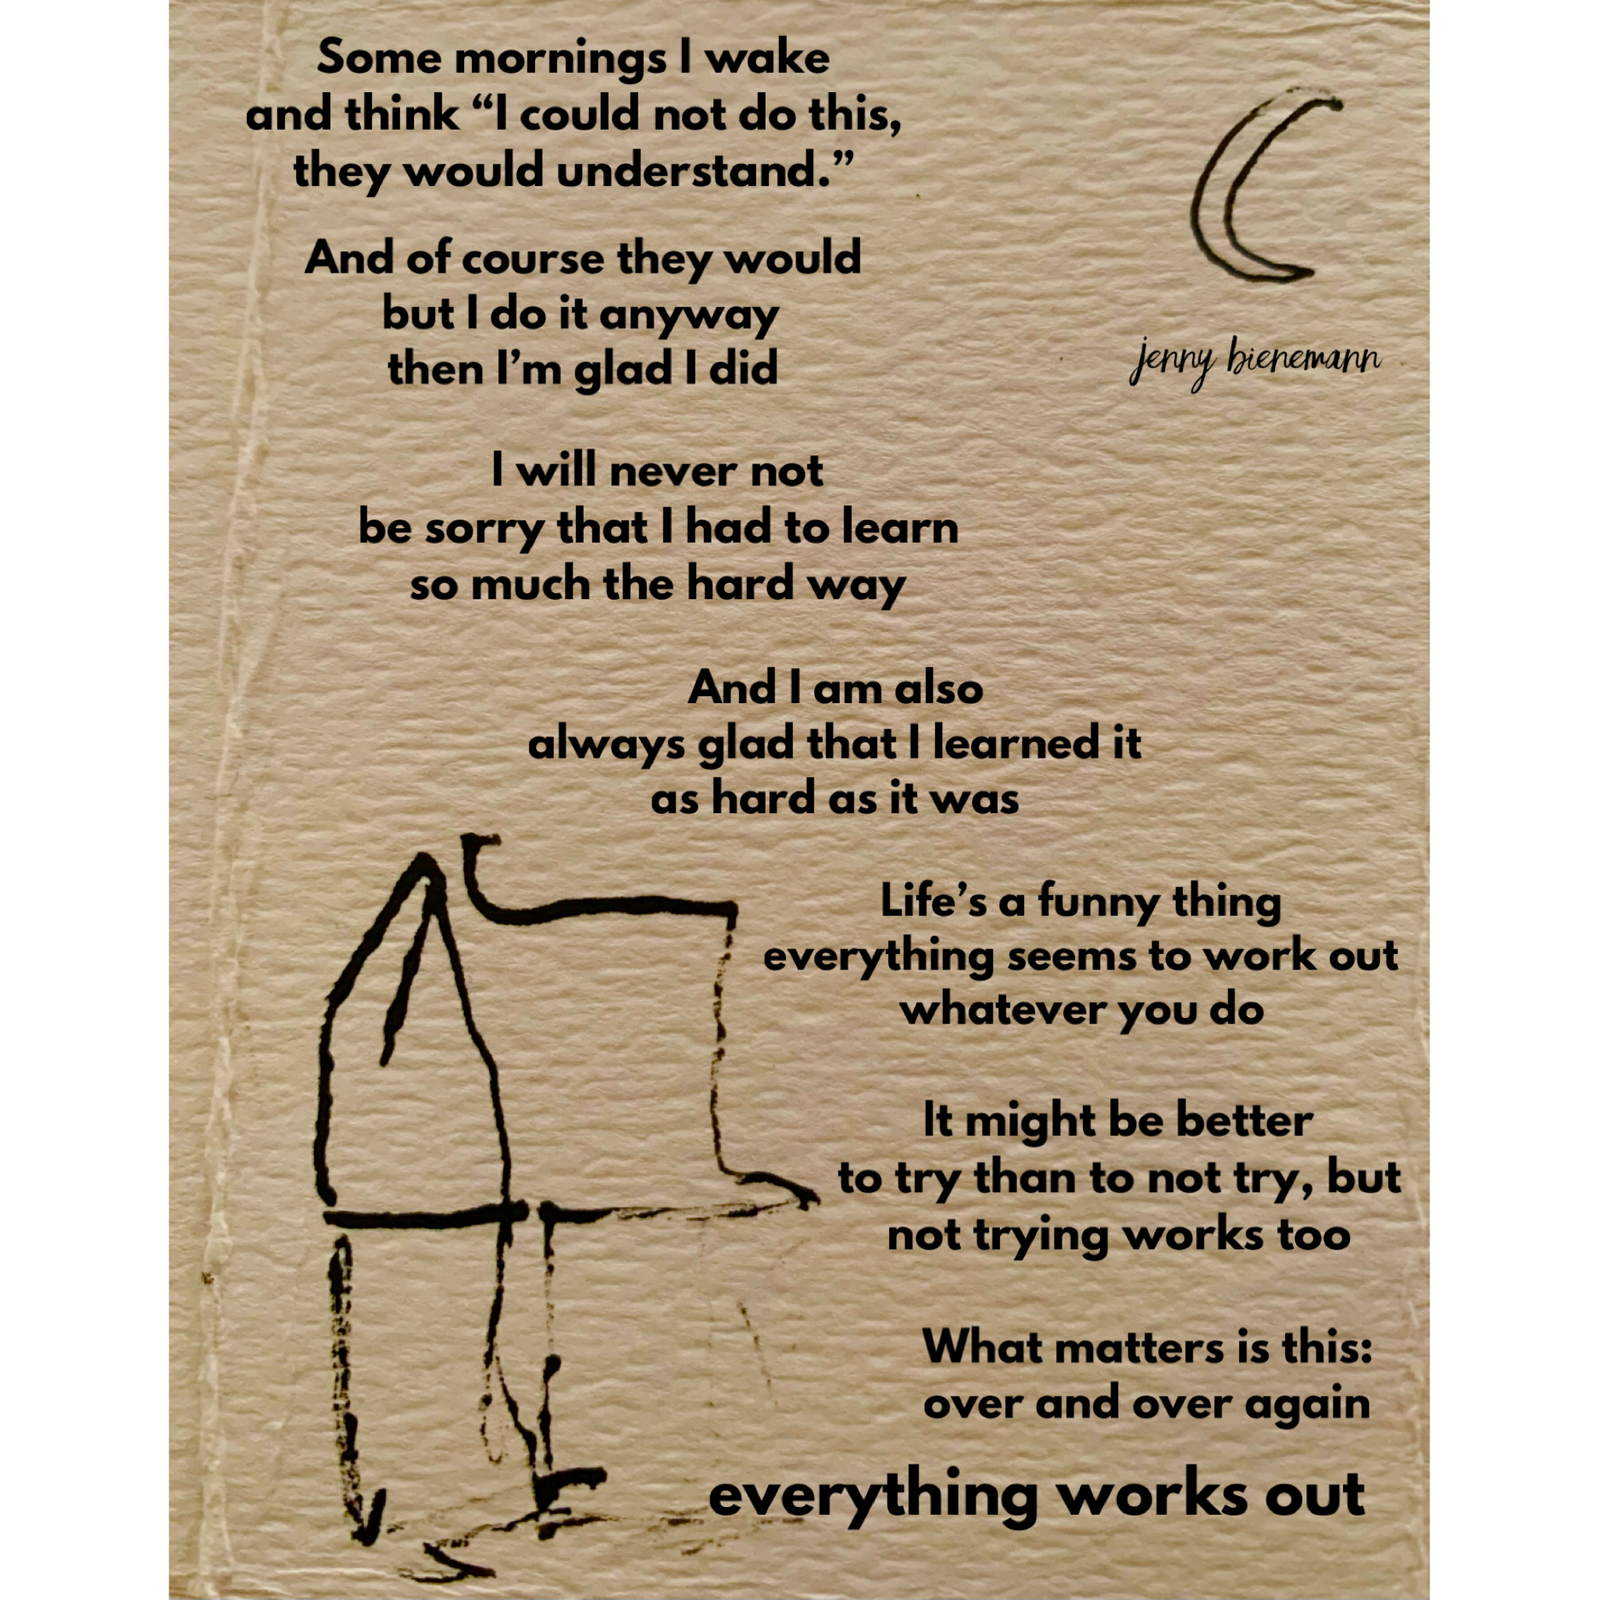 Some mornings I wake
and think “I could not do this,
they would understand.”
And of course they would
but I do it anyway
then I’m glad I did
jenny bienemann
I will never not
be sorry that I had to learn
so much the hard way
And I am also
always glad that I learned it
as hard as it was
Life’s a funny thing
everything seems to work out
whatever you do
It might be better
to try than to not try, but
not trying works too
What matters is this:
over and over again
everything works out